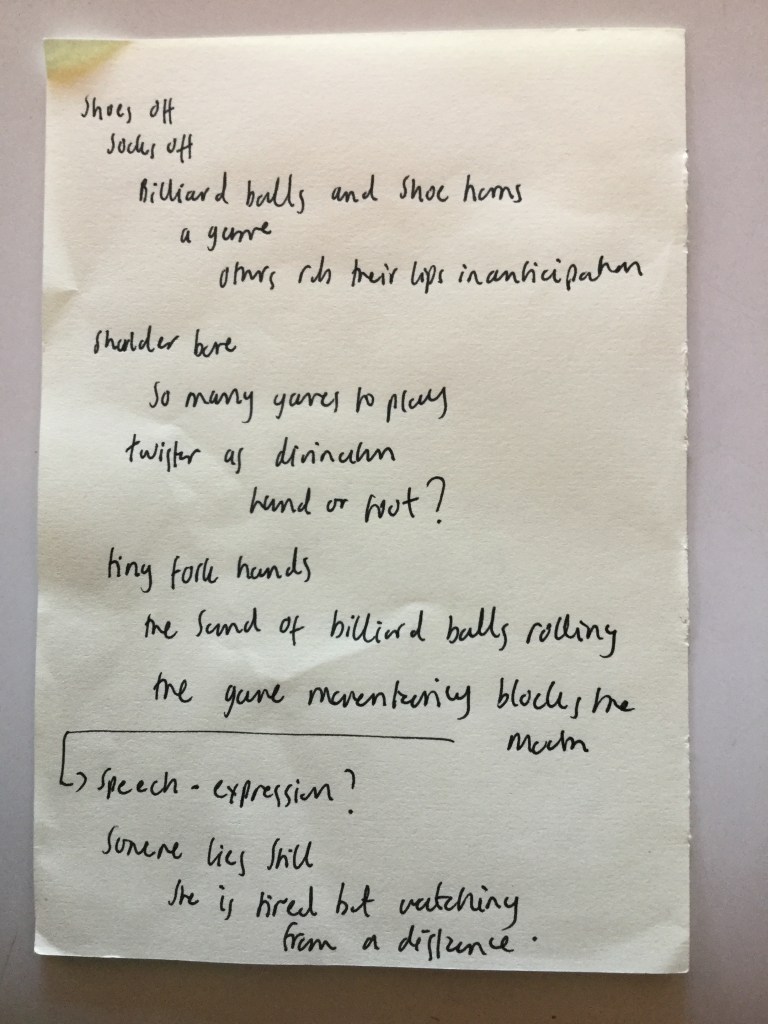 Shoes off
Socks off
Billiard balls and shoe horns
a game
others rub their lips in anticipation
shoulder bare
So many games to play
twister as divination
hand or foot?
tiny fork hands
the sound of billiard balls rolling
the game momentarily blocks the
mouth
speech - expression?
Someone lies still
She is tired but watching
from a distance.